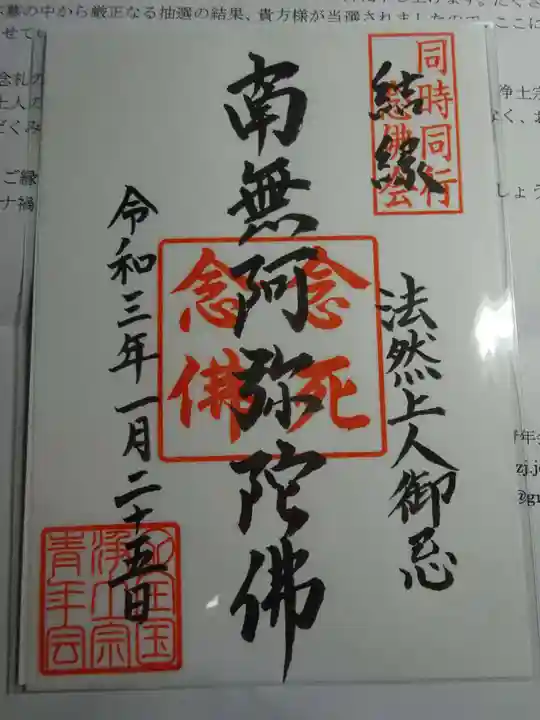 募の中から厳正なる抽選の結果、貴方様が当選されましたので、ここに
せてい
念札の
浄土宗
土人の
なく、お
どくみ
ご縁
しょう
ナ禍
同時同行
念佛会
結縁
法然上人御忌
南無阿弥陀佛
念死
念佛
令和三年一月二十五日
全国
浄土宗
青年会
青年会
zj.j
@g